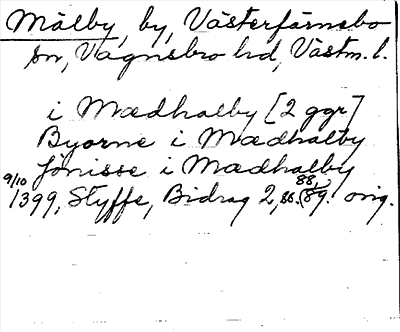 Målby, by, Västerfärnebo
sn, Vagnsbro hd, Västm. l.
i Mædhalby [2 ggr]
Byorne i Mædhalby
Jönisse i Mædhalby
9/10 1399, Styffe, Bidrag 2, ss. 88, (89). orig.